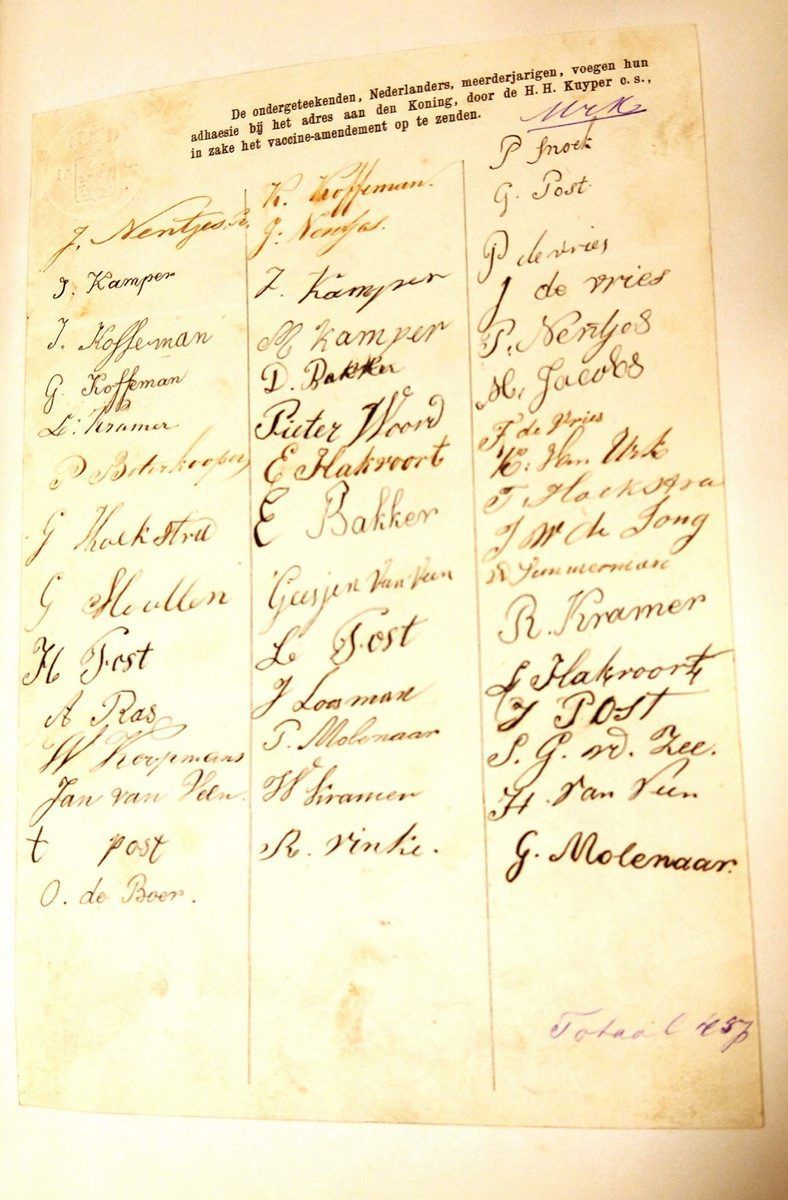 De ondergeteekenden, Nederlanders, meerderjarigen, voegen hun
adhaesie bij het adres aan den Koning, door de H. H. Kuyper c. s.,
in zake het vaccine-amendement op te zenden.
Urk
J. Nentjes
J. Kamper
J. Koffeman
G. Koffeman
L. Kramer
P Boterkooper
G Hoekstra
G
H Post
A Ras
W Koopmans
Jan van Veen
t post
O. de Boer.
K. Koffeman.
J. Nentjes.
J. Kamper
M Kamper
D. Bakker
Pieter Woord
E Hakvoort
E Bakker
Geesjen van Veen
L Post
J Loosman
P. Molenaar
W Kramer
R. Vinke.
P Snoek
G. Post
P de vries
J de vries
P. Nentjes
M. Jacobs
F de Vries
K. Van Urk
T. Hoekstra
J W de Jong
R. Kramer
L Hakvoort
J POst
S. G. vd. Zee.
H. Van Veen
G. Molenaar.
Totaal 457